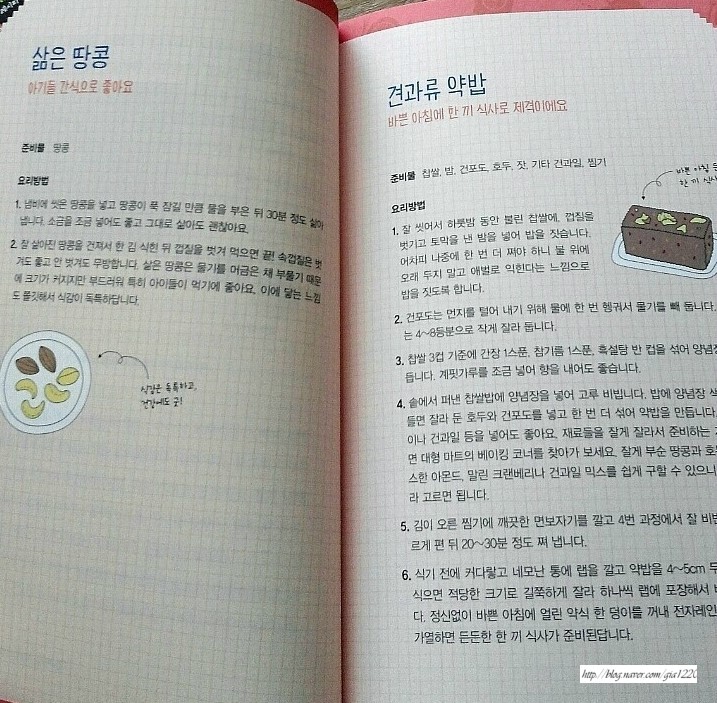 삶은 땅콩
아기들 간식으로 좋아요
준비물 땅콩
요리방법
1. 냄비에 씻은 땅콩을 넣고 땅콩이 푹 잠길 만큼 물을 부은 뒤 30분 정도 삶아
냅니다. 소금을 조금 넣어도 좋고 그대로 삶아도 괜찮아요.
2. 잘 삶아진 땅콩을 건져서 한 김 식힌 뒤 껍질을 벗겨 먹으면 끝! 속껍질은 벗
겨도 좋고 안 벗겨도 무방합니다. 삶은 땅콩은 물기를 머금은 채 부풀기 때문
에 크기가 커지지만 부드러워 특히 아이들이 먹기에 좋아요. 이에 닿는 느낌
도 쫄깃해서 식감이 독특하답니다.
식감은 독특하고,
건강에도 굿!
견과류 약밥
바쁜 아침에 한 끼 식사로 제격이에요
준비물 찹쌀, 밤, 건포도, 호두, 잣, 기타 견과일, 찜기
요리방법
바쁜 아침 든
한 끼 식사
1. 잘 씻어서 하룻밤 동안 불린 찹쌀에, 껍질을
벗기고 토막을 낸 밤을 넣어 밥을 짓습니다.
어차피 나중에 한 번 더 쪄야 하니 불 위에
오래 두지 말고 애벌로 익힌다는 느낌으로
밥을 짓도록 합니다.
2. 건포도는 먼지를 털어 내기 위해 물에 한 번 헹궈서 물기를 빼 둡니다.
는 4~8등분으로 작게 잘라 둡니다.
3. 찹쌀 3컵 기준에 간장 1스푼, 참기름 1스푼, 흑설탕 반 컵을 섞어 양념장
듭니다. 계핏가루를 조금 넣어 향을 내어도 좋습니다.
4. 솥에서 퍼낸 찹쌀밥에 양념장을 넣어 고루 비빕니다. 밥에 양념장 색
들면 잘라 둔 호두와 건포도를 넣고 한 번 더 섞어 약밥을 만듭니다.
이나 건과일 등을 넣어도 좋아요. 재료들을 잘게 잘라서 준비하는
면 대형 마트의 베이킹 코너를 찾아가 보세요. 잘게 부순 땅콩과 호
스한 아몬드, 말린 크랜베리나 건과일 믹스를 쉽게 구할 수 있으니
라 고르면 됩니다.
5. 김이 오른 찜기에 깨끗한 면보자기를 깔고 4번 과정에서 잘 비빈
르게 편 뒤 20~30분 정도 쪄 냅니다.
6. 식기 전에 커다랗고 네모난 통에 랩을 깔고 약밥을 4~5cm 두
식으면 적당한 크기로 길쭉하게 잘라 하나씩 랩에 포장해서
다. 정신없이 바쁜 아침에 열린 약식 한 덩이를 꺼내 전자레인
가열하면 든든한 한 끼 식사가 준비된답니다.
http://blog.naver.com/gia1220